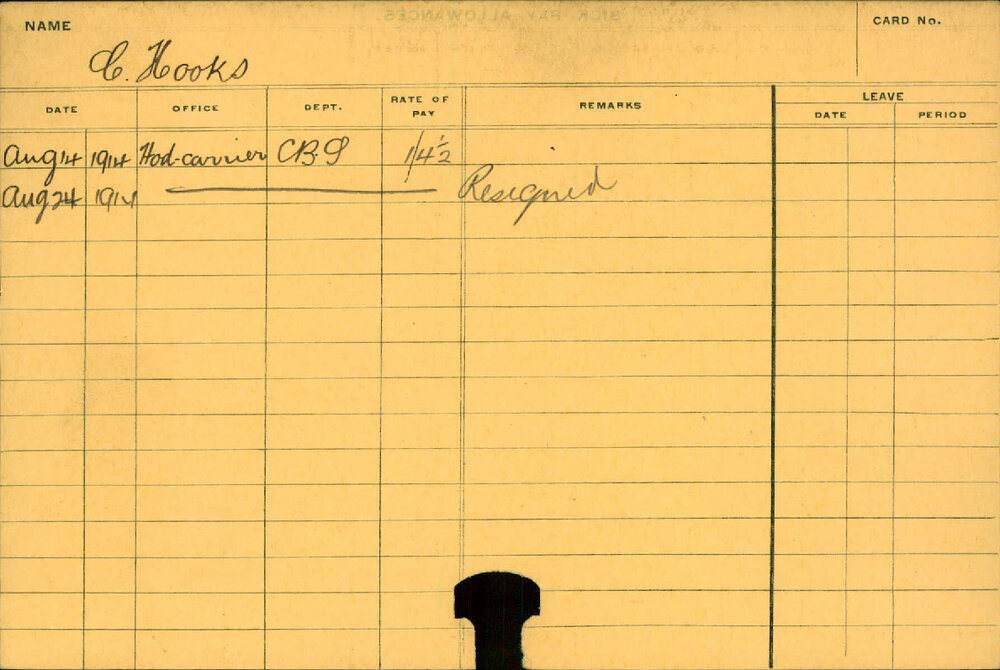 NAME C. Hooks CARD No.
DATE OFFICE DEPT. RATE OF PAY REMARKS LEAVE
DATE PERIOD
Aug 14 1914 Hod-carrier C.B.S 1/4½
Aug 24 1914 Resigned
SICK PAY ALLOWANCES